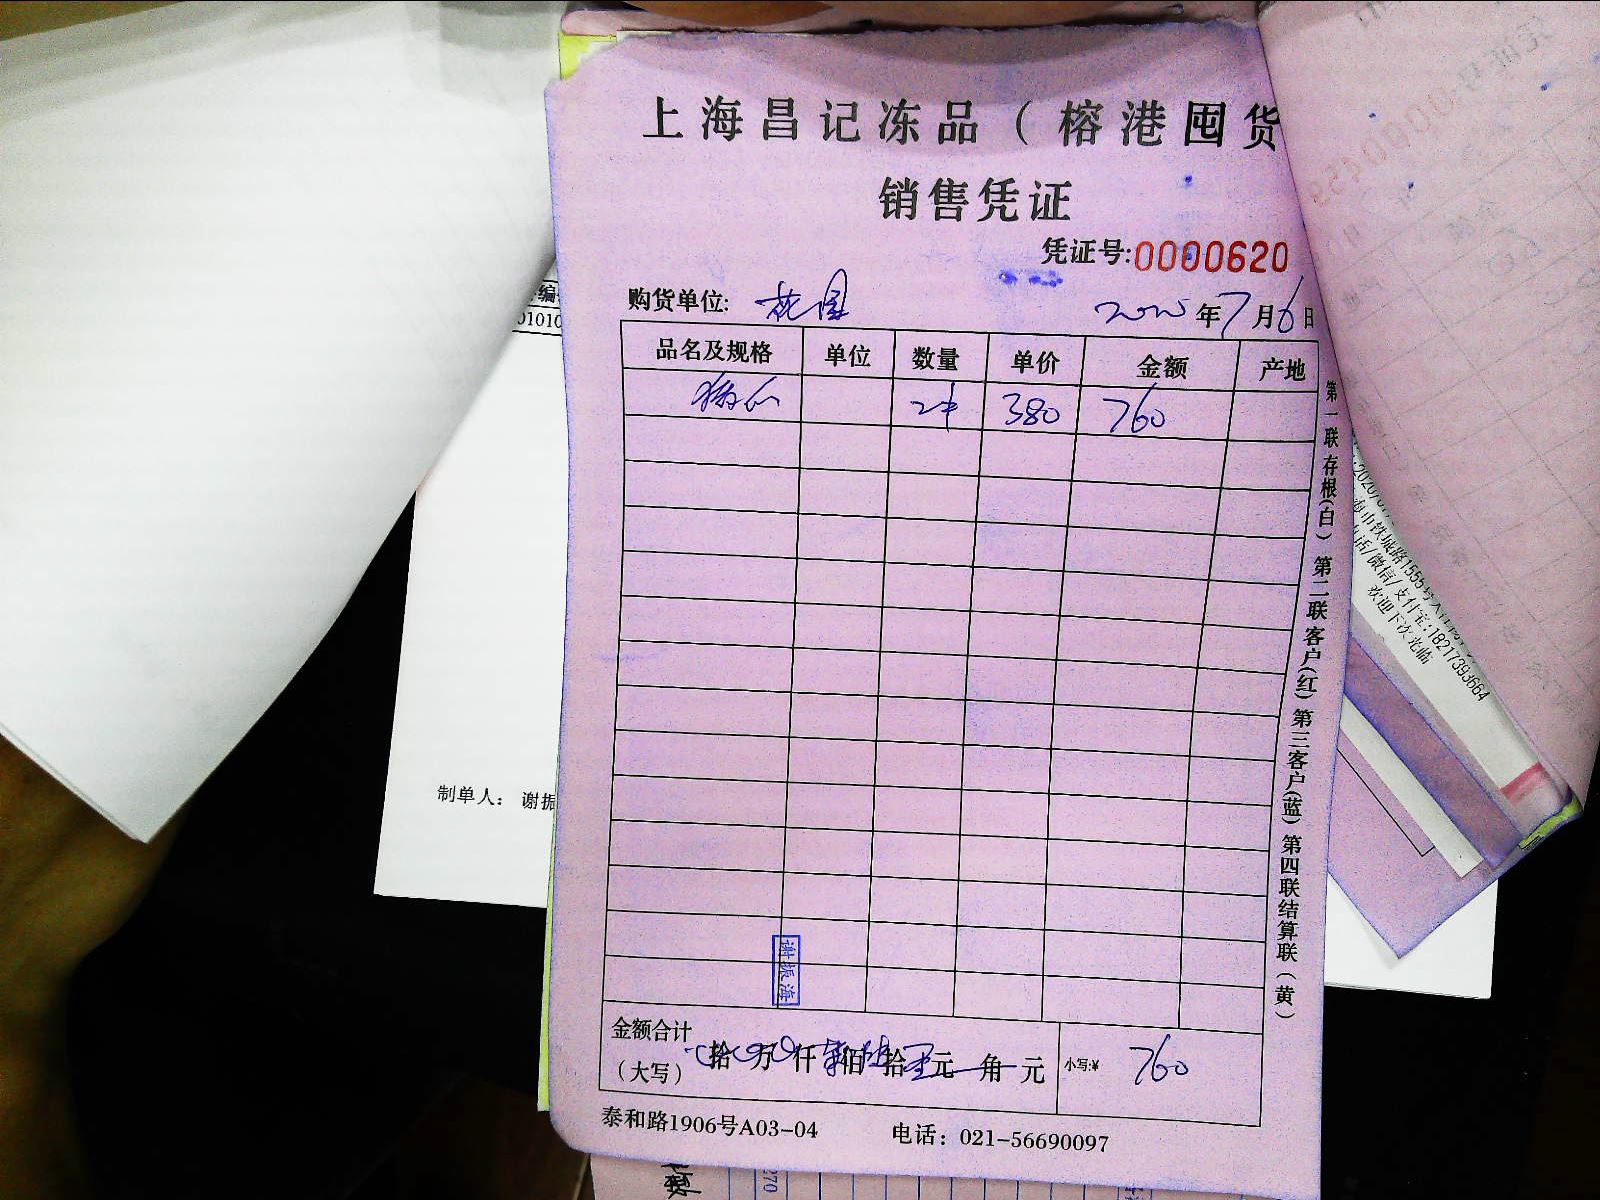 上海昌记冻品（榕港囤货
销售凭证
凭证号:0000620
购货单位: 花园
2020年7月6日
品名及规格 单位 数量 单价 金额 产地
2件 380 760
第一联存根(白) 第二联客户(红) 第三客户(蓝) 第四联结算联(黄)
谢振海
金额合计
(大写) 拾 万 仟 佰 拾 元 角 元 小写:¥ 760
泰和路1906号A03-04 电话：021-56690097
制单人： 谢振
市铁城路1555号
话/微信/支付宝:18217393664
欢迎下次光临